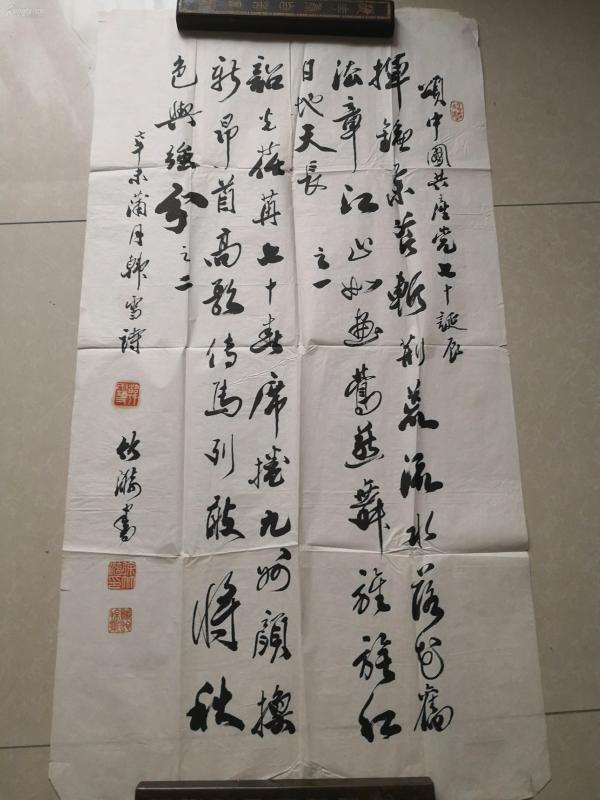 頌中國共產党七十誕辰
揮斬荊荒流水落花舊
法章江山如畫鶯燕舞旌旗红
日地天長 之一
韶光荏苒七十春席捲九州顏換
新昂首高歌傳馬列敢將秋
色與強分 之二
辛未蒲月韩雪詩 竹漪書